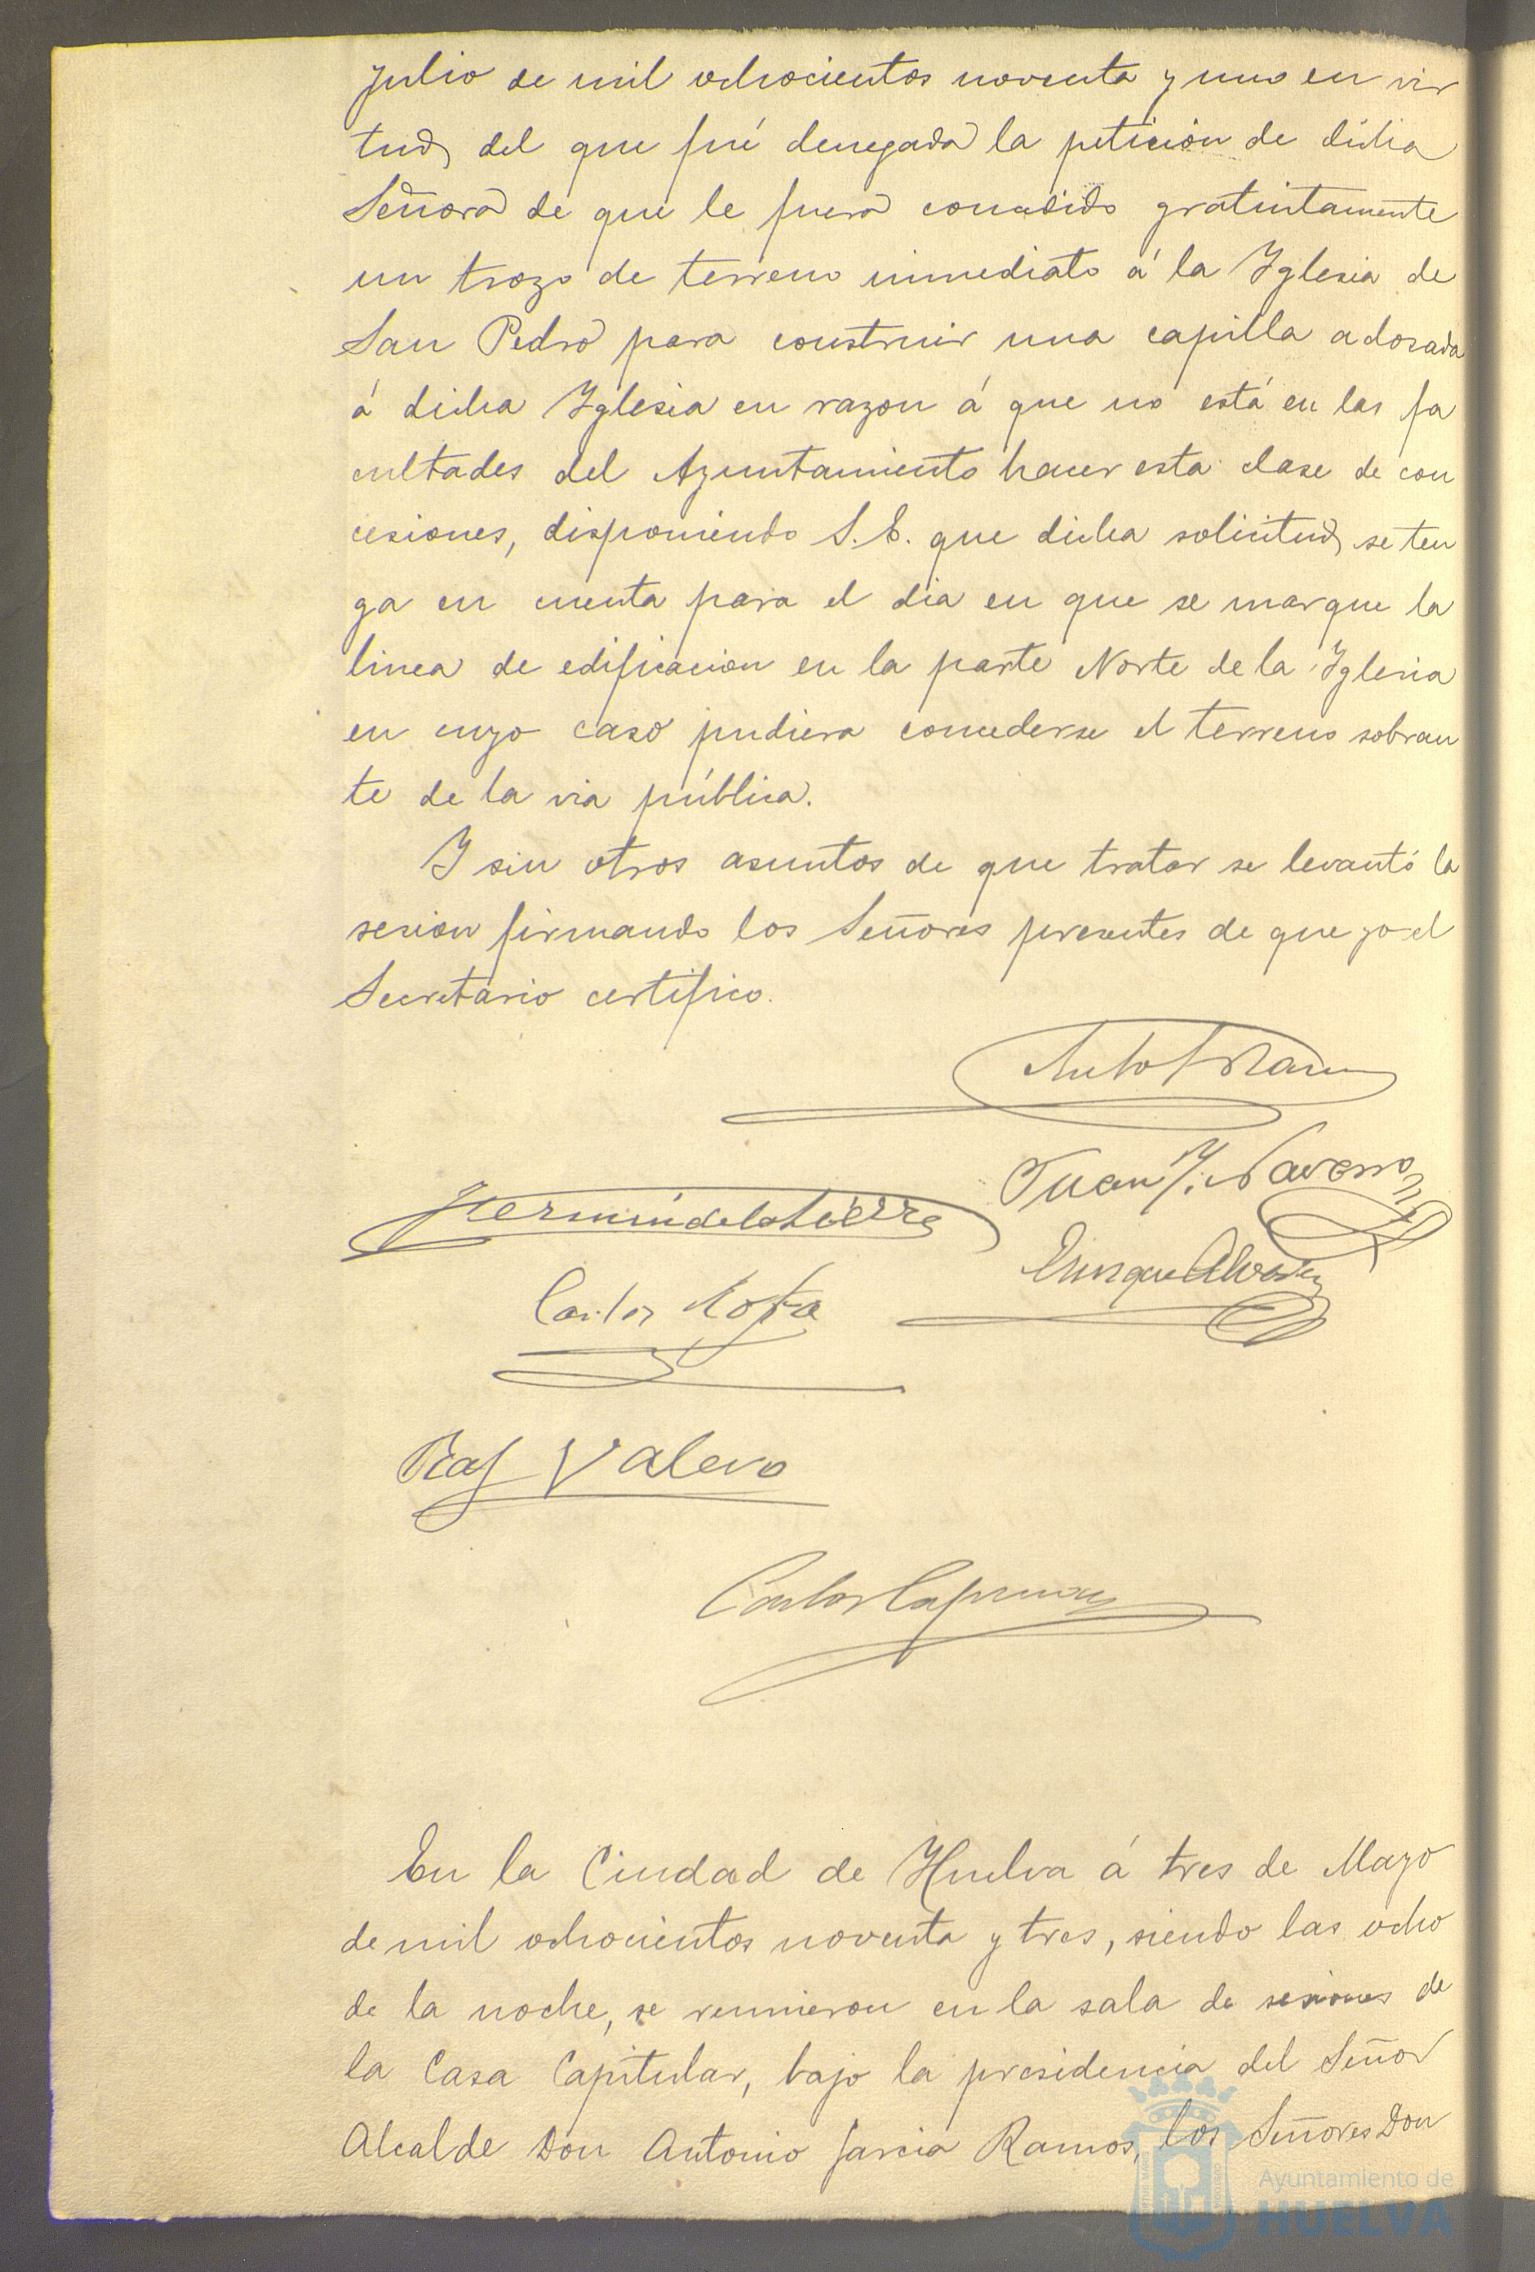 Julio de mil ochocientos noventa y uno en vir
tud del que fué denegada la petición de dicha
Señora de que le fuera concedido gratuitamente
un trozo de terreno inmediato á la Yglesia de
San Pedro para construir una capilla adosada
á dicha Yglesia en razon á que no está en las fa
cultades del Ayuntamiento hacer esta clase de con
cesiones, disponiendo S.E. que dicha solicitud se ten
ga en cuenta para el dia en que se marque la
linea de edificacion en la parte Norte de la Yglesia
en cuyo caso pudiera concederse el terreno sobran
te de la via pública.
Y sin otros asuntos de que tratar se levantó la
sesion firmando los Señores presentes de que yo el
Secretario certifico.
Juan Y. Navarro
Fermín de la Sierra
Enrique
Carlos
Raf Valero
Carlos
En la Ciudad de Huelva á tres de Mayo
de mil ochocientos noventa y tres, siendo las ocho
de la noche, se reunieron en la sala de sesiones de
la Casa Capitular, bajo la presidencia del Señor
Alcalde Don Antonio Garcia Ramos, los Señores Don
Ayuntamiento de
HUELVA